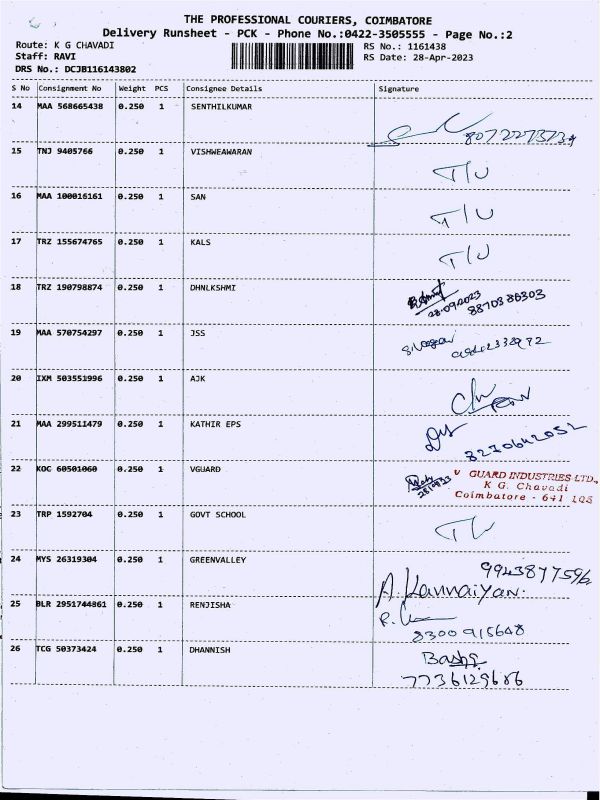 THE PROFESSIONAL COURIERS, COIMBATORE
Delivery Runsheet - PCK - Phone No.:0422-3505555 - Page No.:2
Route: K G CHAVADI RS No.: 1161438
Staff: RAVI RS Date: 28-Apr-2023
DRS No.: DCJB116143802
S No Consignment No Weight PCS Consignee Details Signature
14 MAA 568665438 0.250 1 SENTHILKUMAR
15 TNJ 9405766 0.250 1 VISHWEAWARAN
T/U
16 MAA 100016161 0.250 1 SAN
T/U
17 TRZ 155674765 0.250 1 KALS
T/U
18 TRZ 190798874 0.250 1 DHNLKSHMI
19 MAA 570754297 0.250 1 JSS
20 IXM 503551996 0.250 1 AJK
21 MAA 299511479 0.250 1 KATHIR EPS
8270642052
22 KOC 60501060 0.250 1 VGUARD
V GUARD INDUSTRIES LTD.,
K G. Chavadi
Coimbatore - 641 105
23 TRP 1592704 0.250 1 GOVT SCHOOL
24 MYS 26319304 0.250 1 GREENVALLEY
9943877596
A. Kannaiyan.
25 BLR 2951744861 0.250 1 RENJISHA
8300915648
26 TCG 50373424 0.250 1 DHANNISH
7736129686